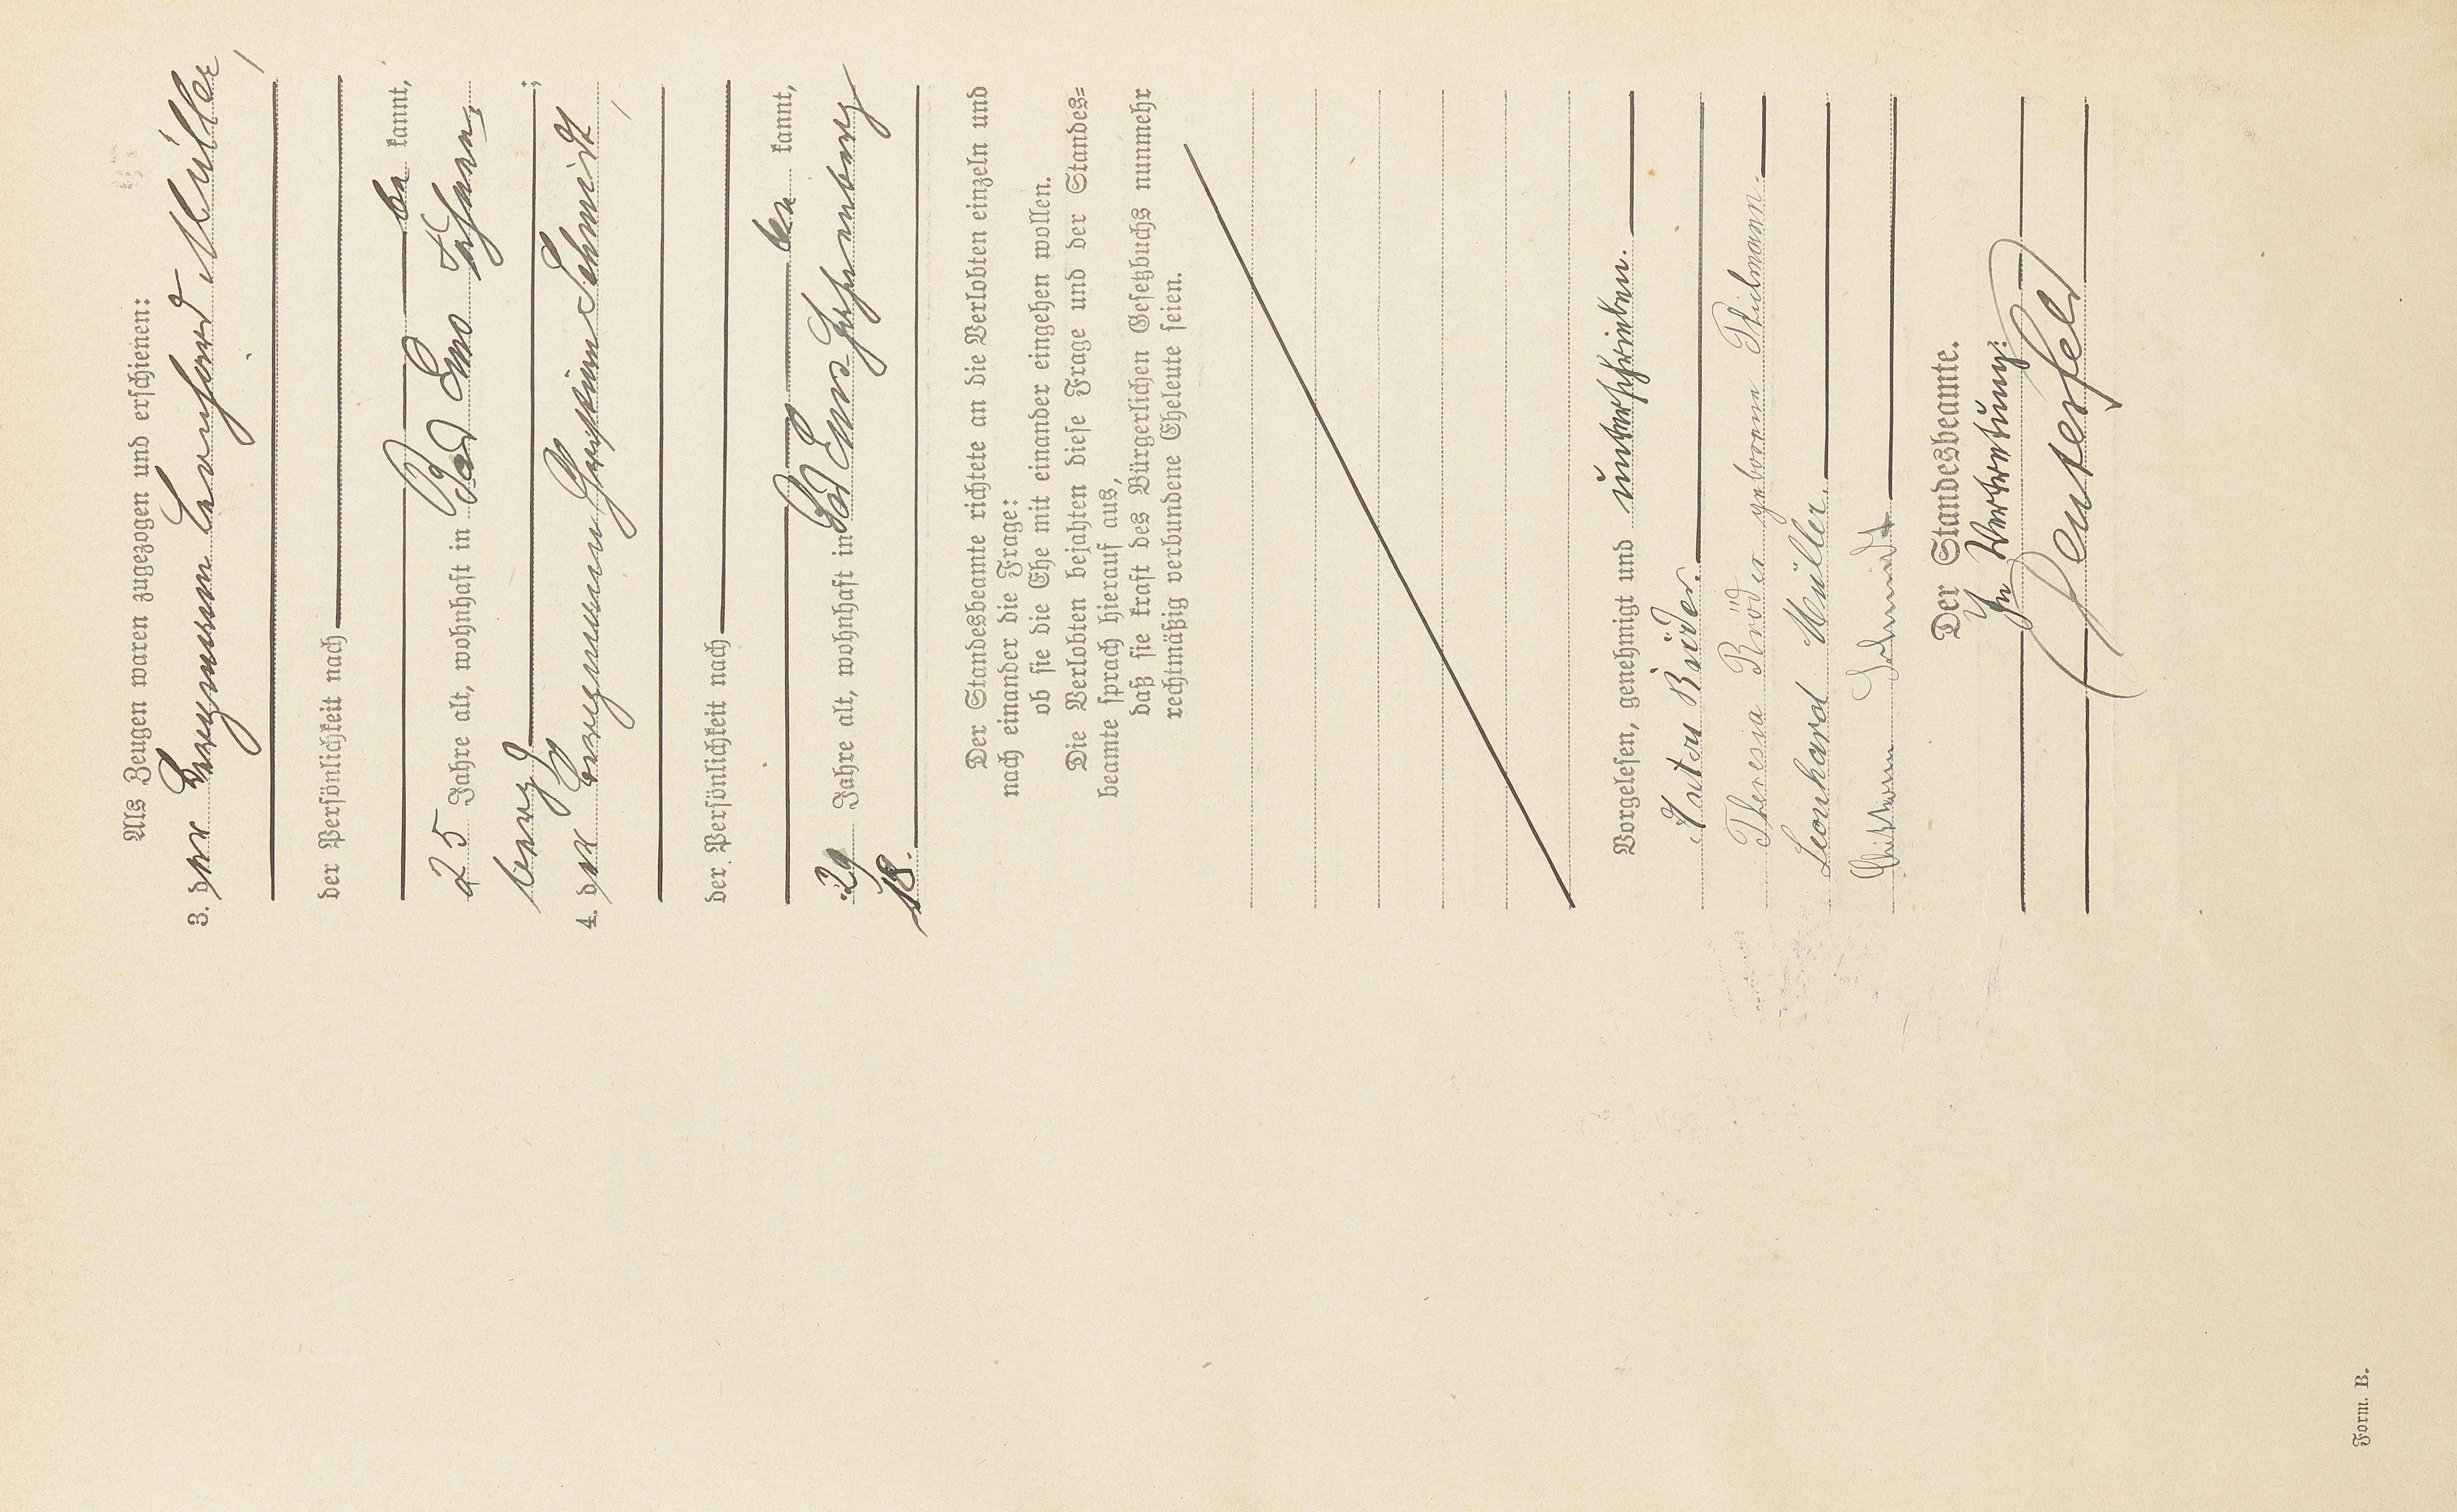 Als Zeugen waren zugezogen und erschienen:
3. der Bergmann Leonhard Müller,
der Persönlichkeit nach
be kannt,
25 Jahre alt, wohnhaft in Bad Ems
berg 9;
4. der Bergmann Schmidt,
der Persönlichkeit nach
be kannt,
29 Jahre alt, wohnhaft in Bad Ems
18.
Der Standesbeamte richtete an die Verlobten einzeln und
nach einander die Frage:
ob sie die Ehe mit einander eingehen wollen.
Die Verlobten bejahten diese Frage und der Standes=
beamte sprach hierauf aus,
daß sie kraft des Bürgerlichen Gesetzbuchs nunmehr
rechtmäßig verbundene Eheleute seien.
Vorgelesen, genehmigt und unterschrieben.
Anton
Theresia Bröder geborene Thielmann.
Leonhard Müller.
Schmidt
Der Standesbeamte.
In Vertretung:
Form. B.